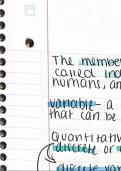 The member
called ind
humans, an
variable - a
that can be
Quantitativ
discrete or
discrete var